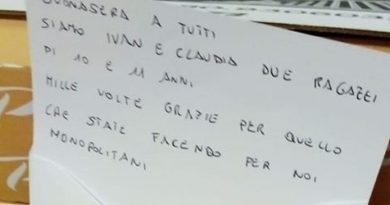 BUONASERA A TUTTI
SIAMO IVAN E CLAUDIA DUE RAGAZZI
DI 10 E 11 ANNI
MILLE VOLTE GRAZIE PER QUELLO
CHE STATE FACENDO PER NOI
MONOPOLITANI